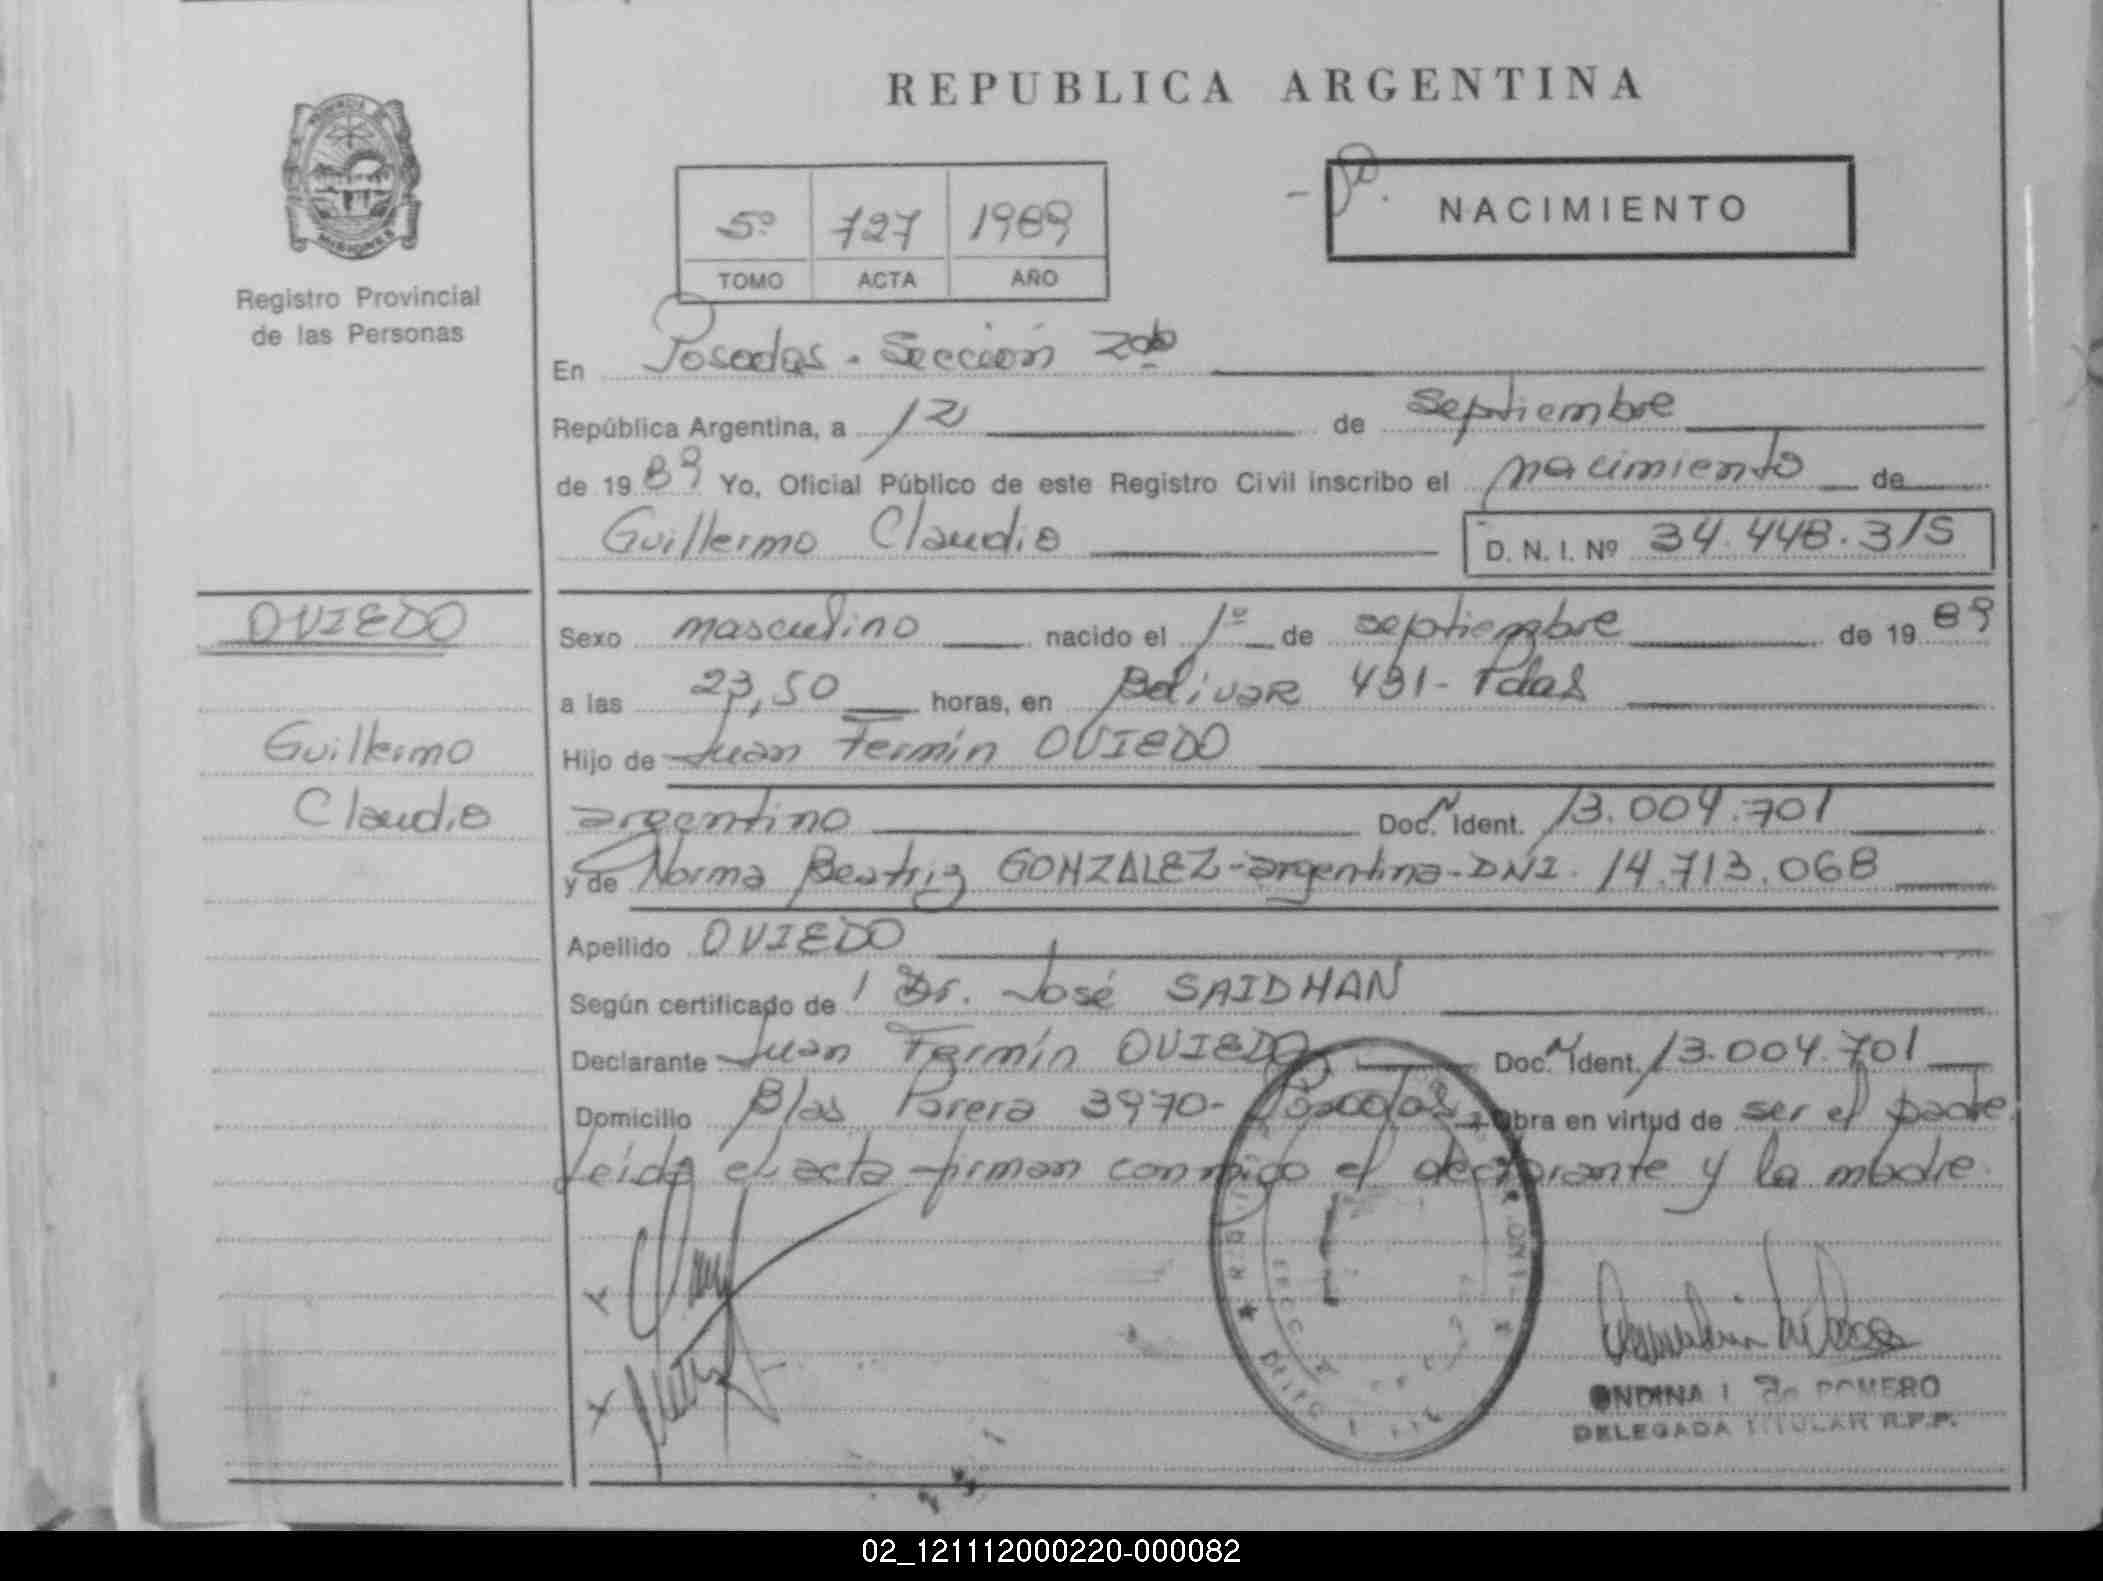 REPUBLICA ARGENTINA
PROVINCIA
MISIONES
Registro Provincial
de las Personas
5º 727 1989
TOMO ACTA AÑO
NACIMIENTO
En Posadas. Sección 2da
República Argentina, a 12 de septiembre
de 1989 Yo, Oficial Público de este Registro Civil inscribo el nacimiento de
Guillermo Claudio D. N. I. Nº 34.448.315
OVIEDO
Guillermo
Claudio
Sexo masculino nacido el 1º de septiembre de 1989
a las 23,50 horas, en Bolivar 431- Pdas
Hijo de Juan Fermín OVIEDO
argentino Doc. Ident. 13.004.701
y de Norma Beatriz GONZALEZ-argentina-DNI. 14.713.068
Apellido OVIEDO
Según certificado de Dr. José SAIDMAN
Declarante Juan Fermín OVIEDO Doc. Ident. 13.004.701
Domicilio Blas Parera 3970- Posadas Obra en virtud de ser el padre
leída el acta firman conmigo el declarante y la madre.
ONDINA I. de ROMERO
DELEGADA TITULAR R.P.P.
02_121112000220-000082